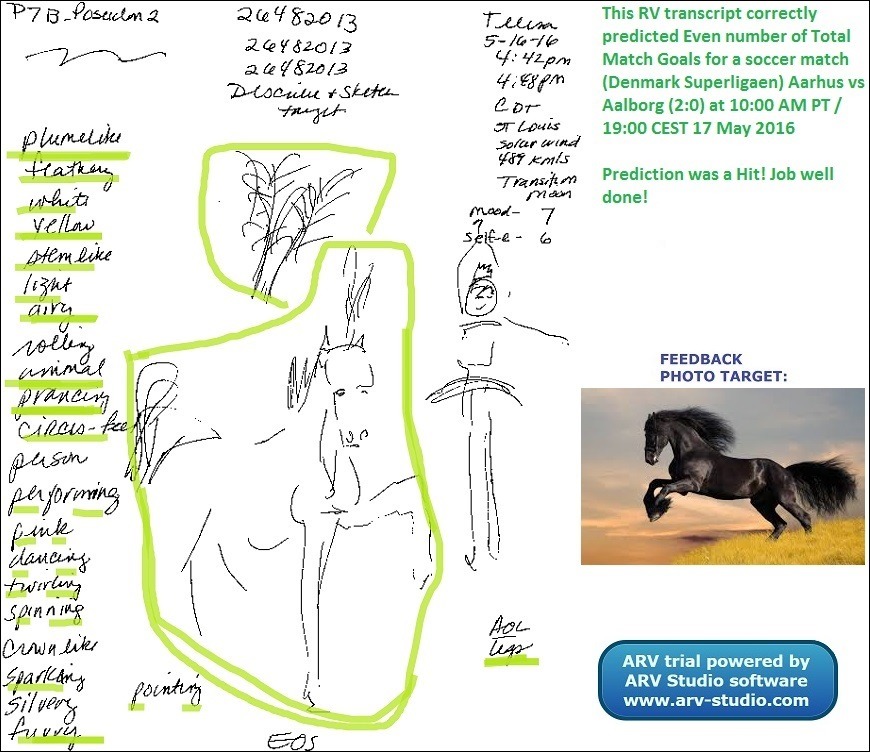 P7B_Poseidon 2
26482013
26482013
26482013
Describe & Sketch
target
Teresa
5-16-16
4:42pm
4:48pm
CDT
St Louis
solar wind
489 km/s
Transition
moon
mood- 7
self-e- 6
plumelike
feathery
white
yellow
stemlike
light
airy
rolling
animal
prancing
CIRCUS-
person
performing
pink
dancing
twirling
spinning
crownlike
sparkling
silvery
furry
pointing
EOS
AOL
legs
This RV transcript correctly
predicted Even number of Total
Match Goals for a soccer match
(Denmark Superligaen) Aarhus vs
Aalborg (2:0) at 10:00 AM PT /
19:00 CEST 17 May 2016
Prediction was a Hit! Job well
done!
FEEDBACK
PHOTO TARGET:
ARV trial powered by
ARV Studio software
www.arv-studio.com